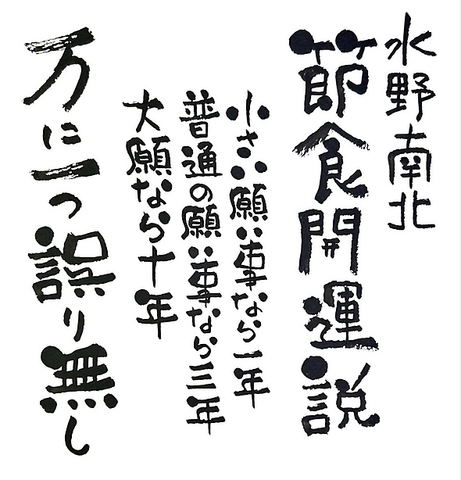 水野南北
節食開運説
小さい願い事なら一年
普通の願い事なら三年
大願なら十年
万に一つ誤り無し